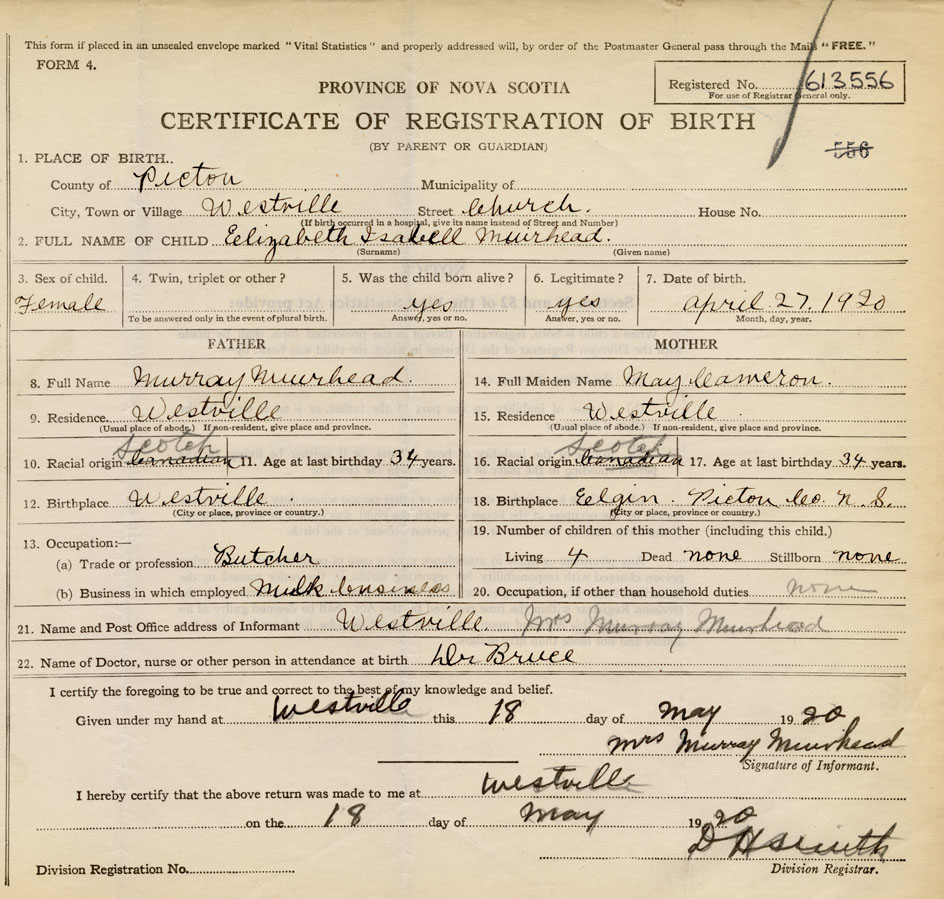 This form if placed in an unsealed envelope marked "Vital Statistics" and properly addressed will, by order of the Postmaster General pass through the Mails "FREE."
FORM 4.
PROVINCE OF NOVA SCOTIA
Registered No. 613556
For use of Registrar General only.
CERTIFICATE OF REGISTRATION OF BIRTH
(BY PARENT OR GUARDIAN)
556
1. PLACE OF BIRTH..
County of Picton Municipality of
City, Town or Village Westville Street Church. House No.
(If birth occurred in a hospital, give its name instead of Street and Number)
2. FULL NAME OF CHILD Eelizabeth Isabell Muirhead.
(Surname) (Given name)
3. Sex of child. 4. Twin, triplet or other? 5. Was the child born alive? 6. Legitimate? 7. Date of birth.
Female yes yes april 27. 1920
To be answered only in the event of plural birth. Answer, yes or no. Answer, yes or no. Month, day, year.
FATHER MOTHER
8. Full Name Murray Muirhead. 14. Full Maiden Name May Cameron.
9. Residence Westville 15. Residence Westville
(Usual place of abode.) If non-resident, give place and province. (Usual place of abode.) If non-resident, give place and province.
Scotch Scotch
10. Racial origin Canadian 11. Age at last birthday 34 years. 16. Racial origin Canadian 17. Age at last birthday 34 years.
12. Birthplace Westville. 18. Birthplace Eelgin. Picton Co. N. S.
(City or place, province or country.) (City or place, province or country.)
13. Occupation:— 19. Number of children of this mother (including this child.)
(a) Trade or profession Butcher Living 4 Dead none Stillborn none
(b) Business in which employed Milk business 20. Occupation, if other than household duties. none
21. Name and Post Office address of Informant Westville. Mrs Murray Muirhead
22. Name of Doctor, nurse or other person in attendance at birth Dr Bruce
I certify the foregoing to be true and correct to the best of my knowledge and belief.
Given under my hand at Westville this 18 day of May 1920
Mrs Murray Muirhead
Signature of Informant.
I hereby certify that the above return was made to me at Westville
on the 18 day of May 1920
D H Smith
Division Registration No. Division Registrar.